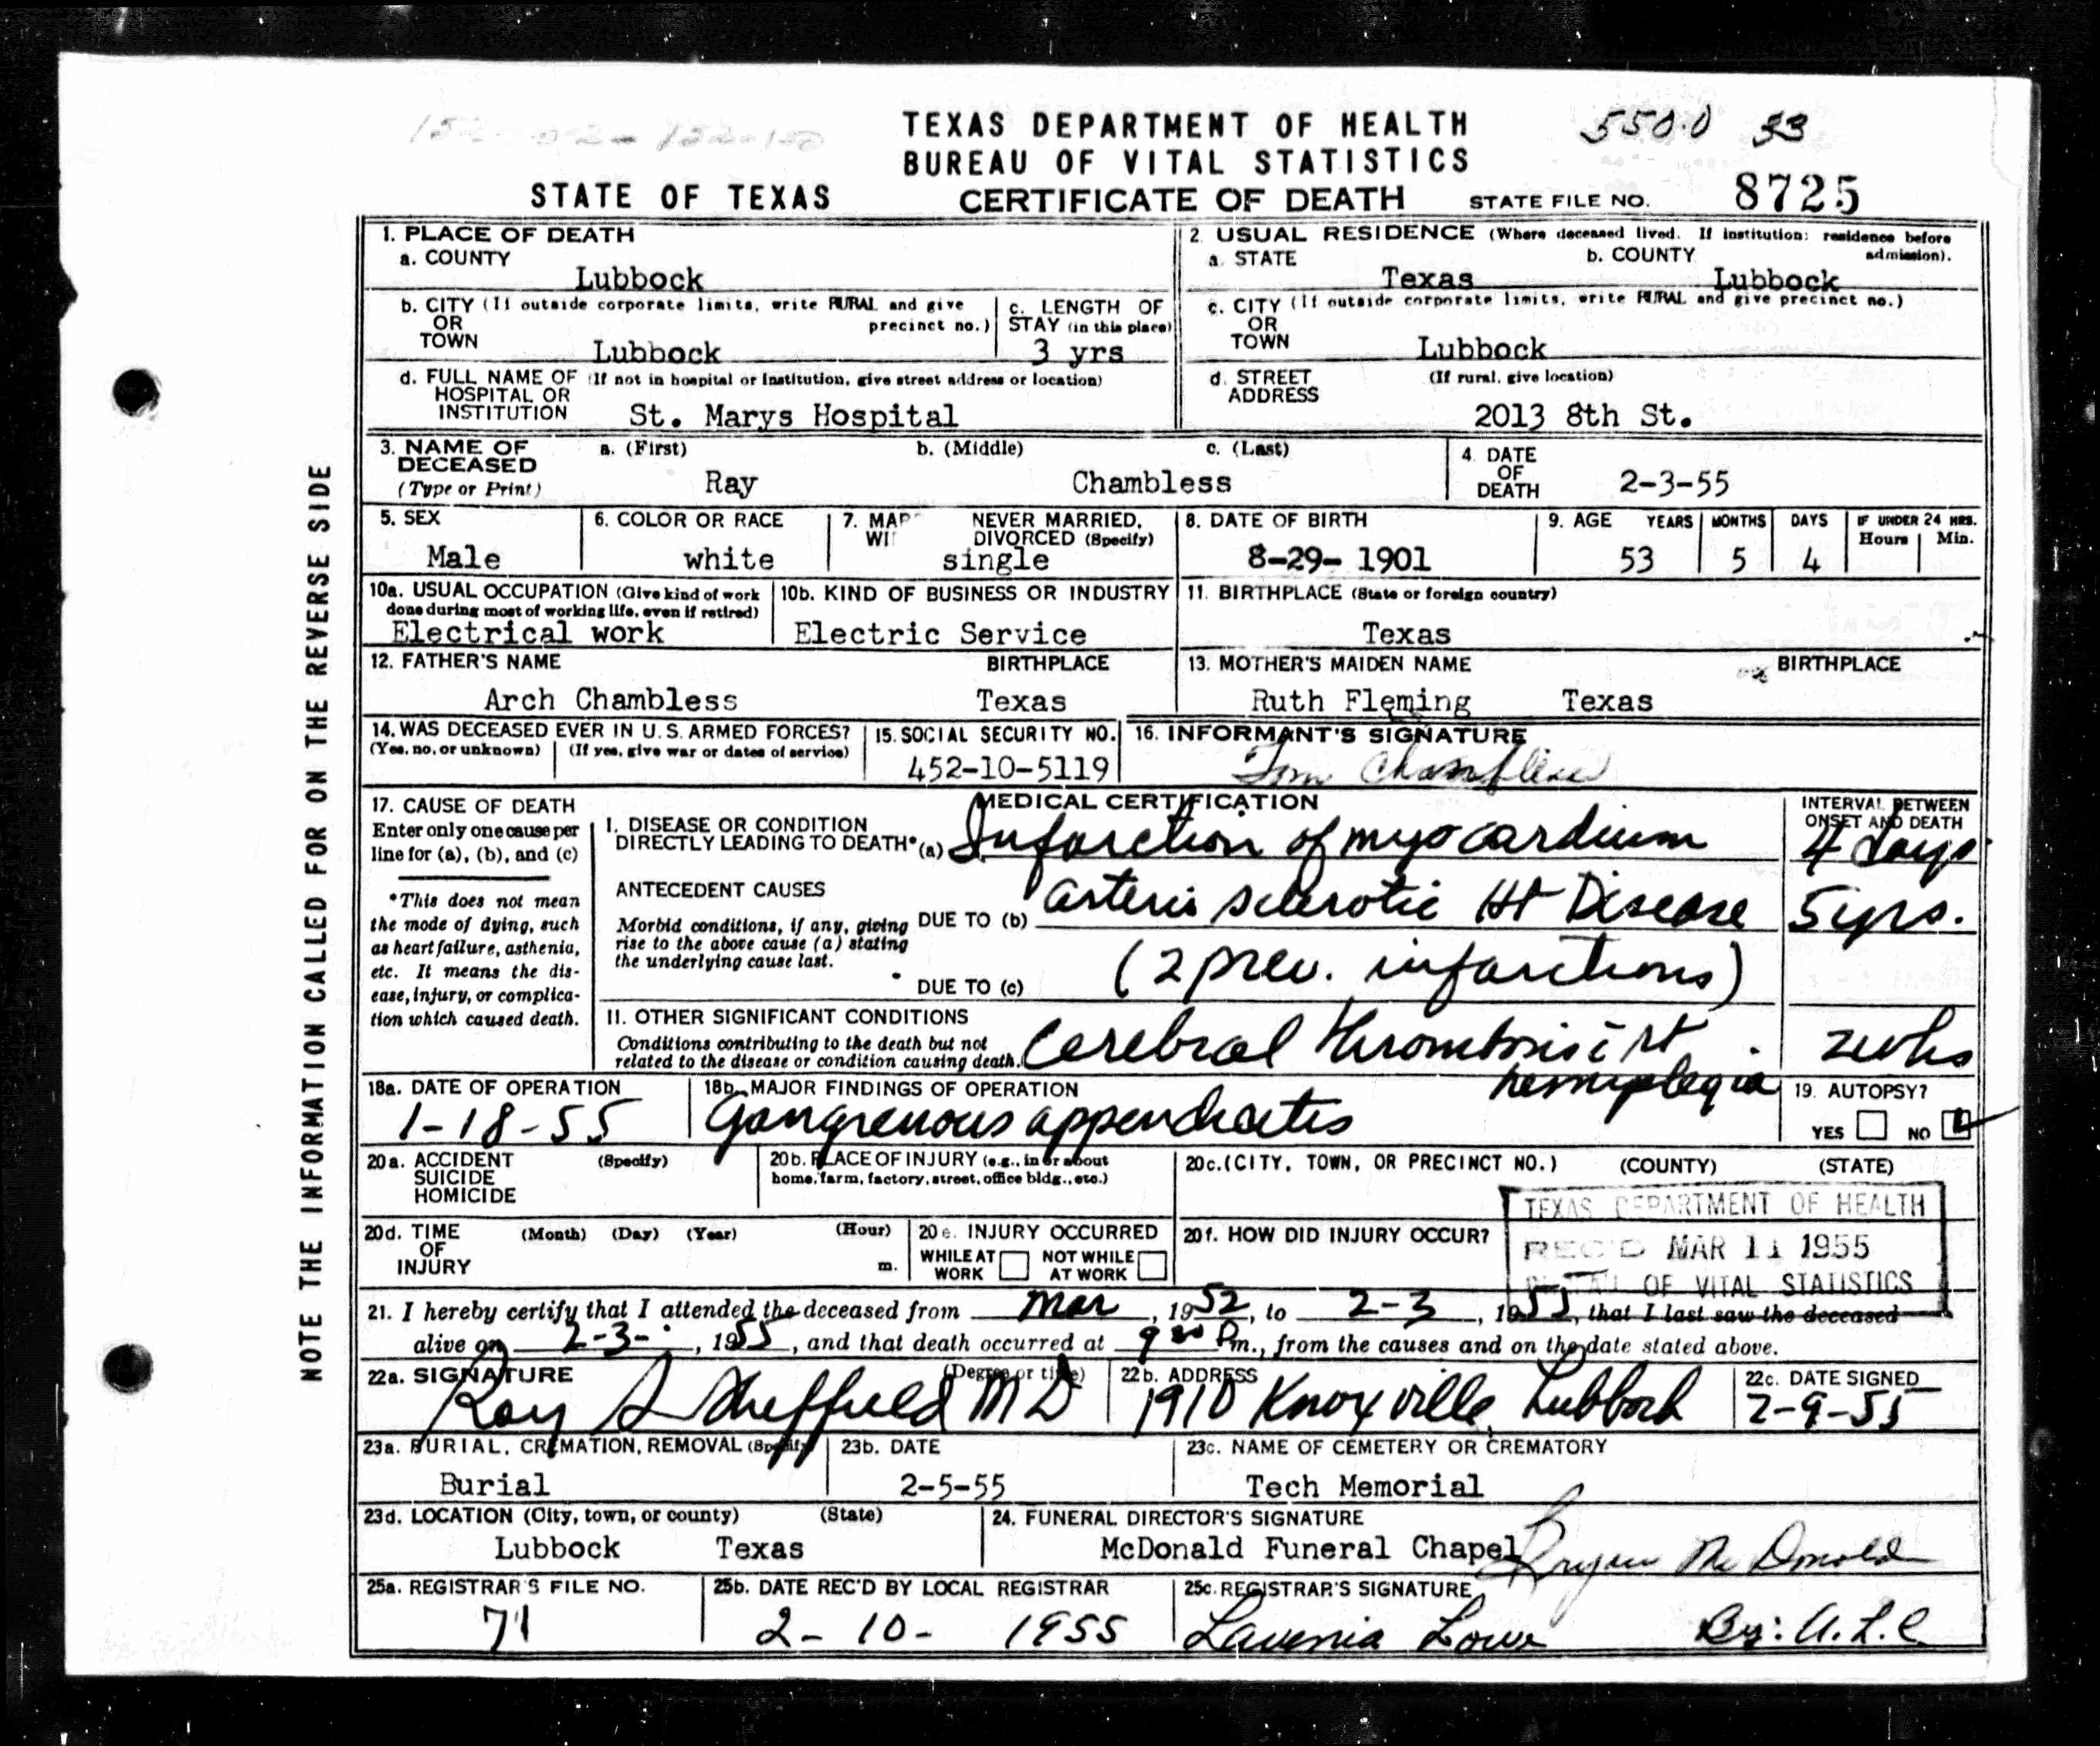 550.0 33
TEXAS DEPARTMENT OF HEALTH
BUREAU OF VITAL STATISTICS
STATE OF TEXAS CERTIFICATE OF DEATH STATE FILE NO. 8725
NOTE THE INFORMATION CALLED FOR ON THE REVERSE SIDE
1. PLACE OF DEATH
a. COUNTY
Lubbock
2. USUAL RESIDENCE (Where deceased lived. If institution: residence before admission).
a. STATE b. COUNTY
Texas Lubbock
b. CITY (If outside corporate limits, write RURAL and give precinct no.)
OR
TOWN
Lubbock
c. LENGTH OF
STAY (in this place)
3 yrs
c. CITY (If outside corporate limits, write RURAL and give precinct no.)
OR
TOWN
Lubbock
d. FULL NAME OF (If not in hospital or institution, give street address or location)
HOSPITAL OR
INSTITUTION
St. Marys Hospital
d. STREET (If rural, give location)
ADDRESS
2013 8th St.
3. NAME OF a. (First) b. (Middle) c. (Last)
DECEASED
(Type or Print)
Ray Chambless
4. DATE
OF
DEATH
2-3-55
5. SEX
Male
6. COLOR OR RACE
white
7. MAR NEVER MARRIED,
WI DIVORCED (Specify)
single
8. DATE OF BIRTH
8-29- 1901
9. AGE YEARS MONTHS DAYS IF UNDER 24 HRS.
Hours Min.
53 5 4
10a. USUAL OCCUPATION (Give kind of work
done during most of working life, even if retired)
Electrical work
10b. KIND OF BUSINESS OR INDUSTRY
Electric Service
11. BIRTHPLACE (State or foreign country)
Texas
12. FATHER'S NAME BIRTHPLACE
Arch Chambless Texas
13. MOTHER'S MAIDEN NAME BIRTHPLACE
Ruth Fleming Texas
14. WAS DECEASED EVER IN U.S. ARMED FORCES?
(Yes, no, or unknown) (If yes, give war or dates of service)
15. SOCIAL SECURITY NO.
452-10-5119
16. INFORMANT'S SIGNATURE
Tom Chambless
17. CAUSE OF DEATH
Enter only one cause per
line for (a), (b), and (c)
*This does not mean
the mode of dying, such
as heart failure, asthenia,
etc. It means the dis-
ease, injury, or complica-
tion which caused death.
MEDICAL CERTIFICATION
INTERVAL BETWEEN
ONSET AND DEATH
I. DISEASE OR CONDITION
DIRECTLY LEADING TO DEATH* (a) Infarction of myocardium 4 days
ANTECEDENT CAUSES
Morbid conditions, if any, giving
rise to the above cause (a) stating
the underlying cause last.
DUE TO (b) arterio sclerotic Ht Disease 5 yrs.
DUE TO (c) (2 prev. infarctions)
II. OTHER SIGNIFICANT CONDITIONS
Conditions contributing to the death but not
related to the disease or condition causing death.
Cerebral thrombosis c̄ rt hemiplegia 2 wks
18a. DATE OF OPERATION
1-18-55
18b. MAJOR FINDINGS OF OPERATION
Gangrenous appendicitis
19. AUTOPSY?
YES NO
20a. ACCIDENT (Specify)
SUICIDE
HOMICIDE
20b. PLACE OF INJURY (e.g., in or about
home, farm, factory, street, office bldg., etc.)
20c. (CITY, TOWN, OR PRECINCT NO.) (COUNTY) (STATE)
20d. TIME (Month) (Day) (Year) (Hour)
OF
INJURY m.
20e. INJURY OCCURRED
WHILE AT WORK NOT WHILE AT WORK
20f. HOW DID INJURY OCCUR?
TEXAS DEPARTMENT OF HEALTH
REC'D MAR 11 1955
OF VITAL STATISTICS
21. I hereby certify that I attended the deceased from Mar, 1952, to 2-3, 1955, that I last saw the deceased
alive on 2-3-, 1955, and that death occurred at 9 30 P m., from the causes and on the date stated above.
22a. SIGNATURE (Degree or title)
Roy S Sheffield MD
22b. ADDRESS
1910 Knoxville, Lubbock
22c. DATE SIGNED
2-9-55
23a. BURIAL, CREMATION, REMOVAL (Specify)
Burial
23b. DATE
2-5-55
23c. NAME OF CEMETERY OR CREMATORY
Tech Memorial
23d. LOCATION (City, town, or county) (State)
Lubbock Texas
24. FUNERAL DIRECTOR'S SIGNATURE
McDonald Funeral Chapel Bryan McDonald
25a. REGISTRAR'S FILE NO.
71
25b. DATE REC'D BY LOCAL REGISTRAR
2- 10- 1955
25c. REGISTRAR'S SIGNATURE
Lavenia Lowe By: A.L.C.